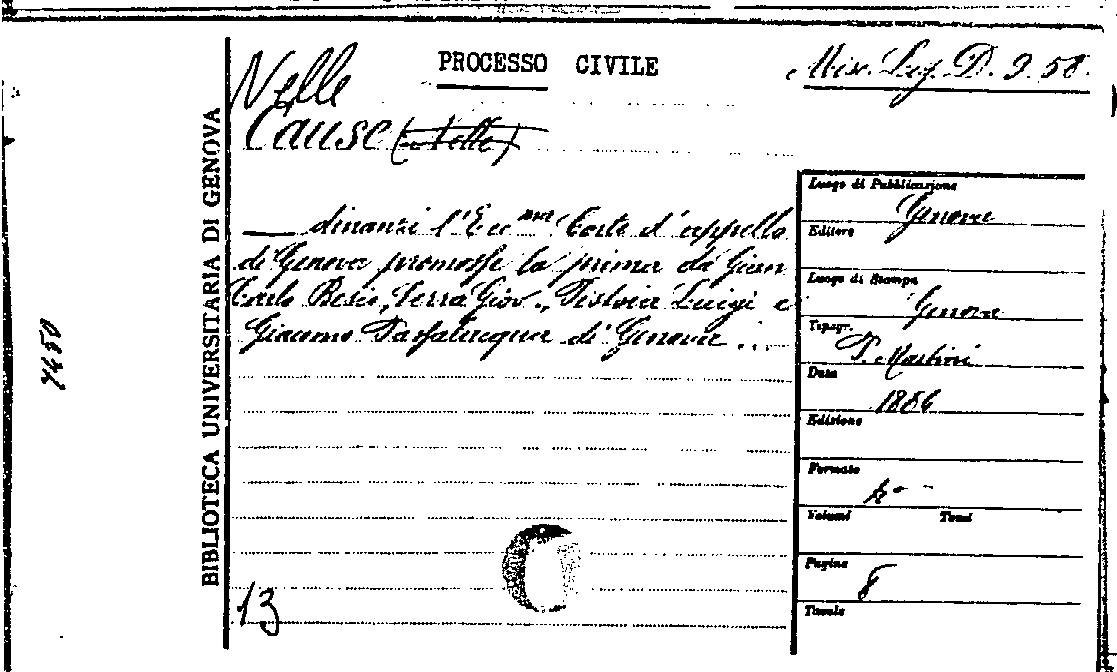 PROCESSO CIVILE
Misc. Lig. D. 9. 58.
Nelle
Cause (Nelle)
— dinanzi l'Ecc.ma Corte d'appello
di Genova promosse la prima da Gian
Carlo Besio, Serra Giov., Pistoia Luigi e
Giacomo Passalacqua di Genova ...
13
BIBLIOTECA UNIVERSITARIA DI GENOVA
7450
Luogo di Pubblicazione
Genova
Editore
Luogo di Stampa
Genova
Tipogr.
P. Martini
Data
1886
Edizione
Formato
Volumi Tomi
Pagine
8
Tavole